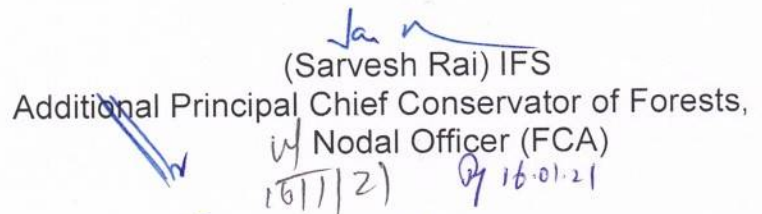 (Sarvesh Rai) IFS
Additional Principal Chief Conservator of Forests,
Nodal Officer (FCA)
16/1/21 16.01.21